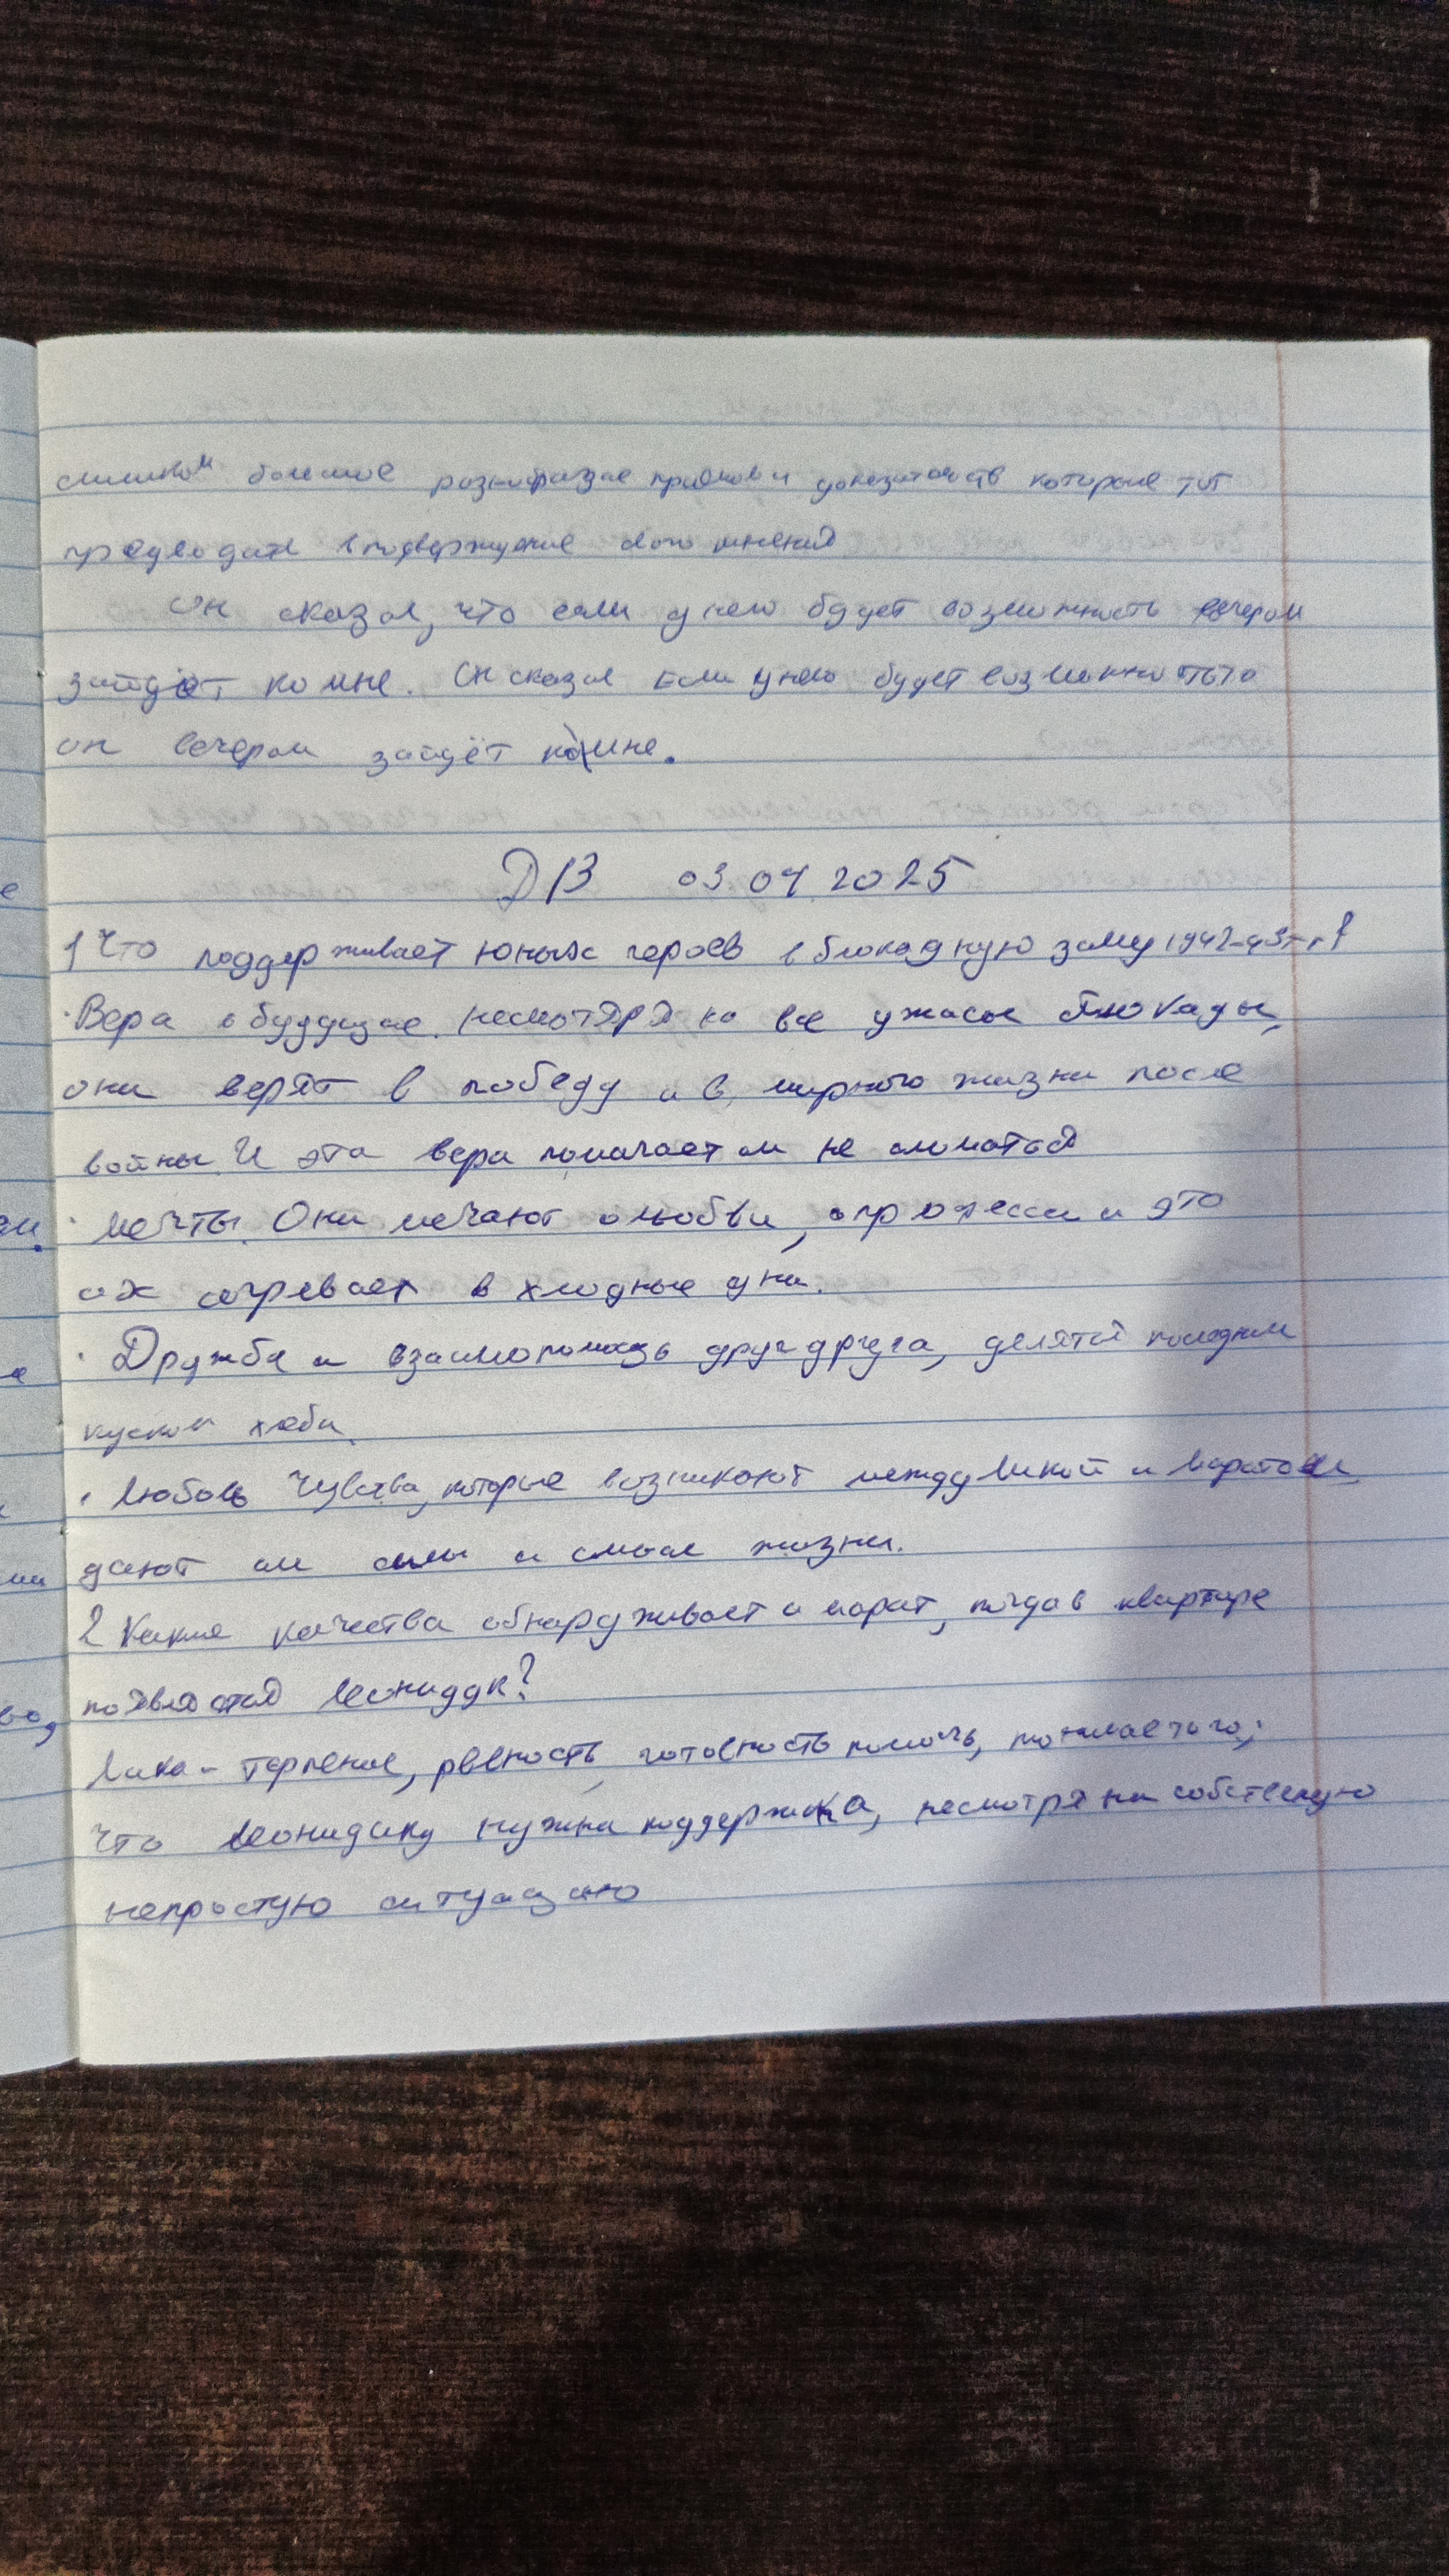 слишком большое разнобразие приёмов и доказательств которые тот
предводите в подверждение свого мнения
Он сказал, что если у него будет возможность вечером
зайдёт ко мне. Он сказал Если у него будет возможность то
он вечером зайдёт ко мне.
Д/З 03.04.2025
1 Что поддерживает юных героев в блокадную зиму 1942-43 г.г?
· Вера в будущее. несмотяря на все ужасы блокады,
они верят в победу и в мирного жизни после
войны. И эта вера помагает им не сломаться
· мечты. Они мечают о любви, о професси и это
их согревает в хлодные дни.
· Дружба и взаимопомощь друг друга, делятся последним
куском хлеба.
· Любовь Чувства, которые возникают между Ликой и Маратом,
дают им силы и смысл жизни.
2 Какие качества обнаруживает и марат, когда в квартире
появляется Леонидик?
Лика - терпение, рвеность, готовность помочь, понимает того,
что Леонидику нужна поддержка, несмотря на собственую
непростую ситуацию